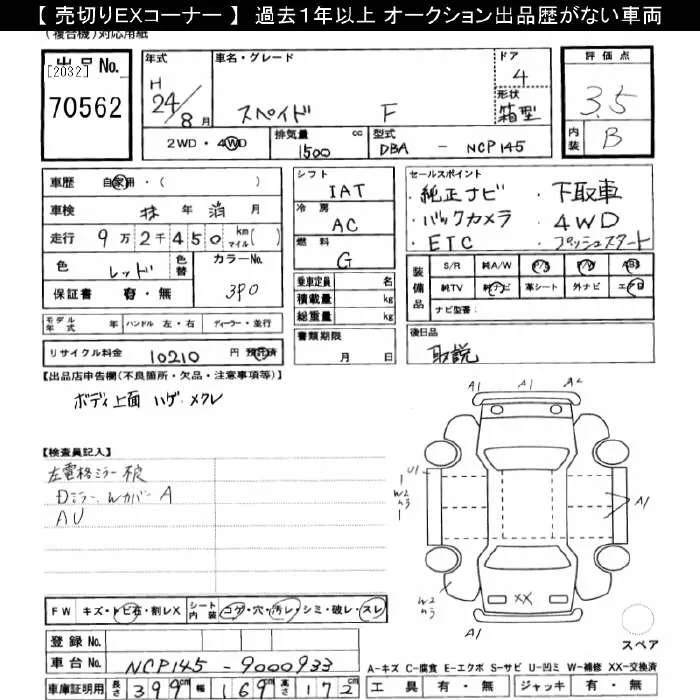 【 売切りEXコーナー 】 過去1年以上 オークション出品歴がない車両
(複合機)対応用紙
出品No.
[2032]
70562
年式
H
24/8月
車名・グレード
スペイド F
ドア
4
形状
箱型
評価点
3.5
内装
B
2WD・4WD
排気量 cc
1500
型式
DBA - NCP145
車歴 自家用・( )
車検 抹 年 消 月
走行 9万2千450 km マイル( )
色
レッド
色替
カラーNo.
3P0
保証書 有・無
モデル年式 年
ハンドル 左・右
ディーラー・並行
リサイクル料金 10210 円 預託済
シフト
IAT
冷房
AC
燃料
G
乗車定員 名
積載量 kg
総重量 kg
書類期限
月 日
セールスポイント
・純正ナビ ・下取車
・バックカメラ ・4WD
・ETC ・プッシュスタート
装備品
S/R 純A/W P/S P/W ABS
純TV 純ナビ 革シート 外ナビ エアB
ナビ型番:
後日品
取説
【出品店申告欄(不良箇所・欠品・注意事項等)】
ボディ上面 ハゲ・メクレ
【検査員記入】
左電格ミラー不良
Dミラー、Wカバー A
AU
A1 A1 A2
U1
W2
A1
W2
XX
A1
スペア
FW キズ・トビ石・割レX
シート内装 コゲ・穴・汚レ・シミ・破レ・スレ
登録No.
車台No. NCP145-9000933
車庫証明用 長さ 399cm 幅 169cm 高さ 172cm
A-キズ C-腐食 E-エクボ S-サビ U-凹ミ W-補修 XX-交換済
工具 有・無 ジャッキ 有・無